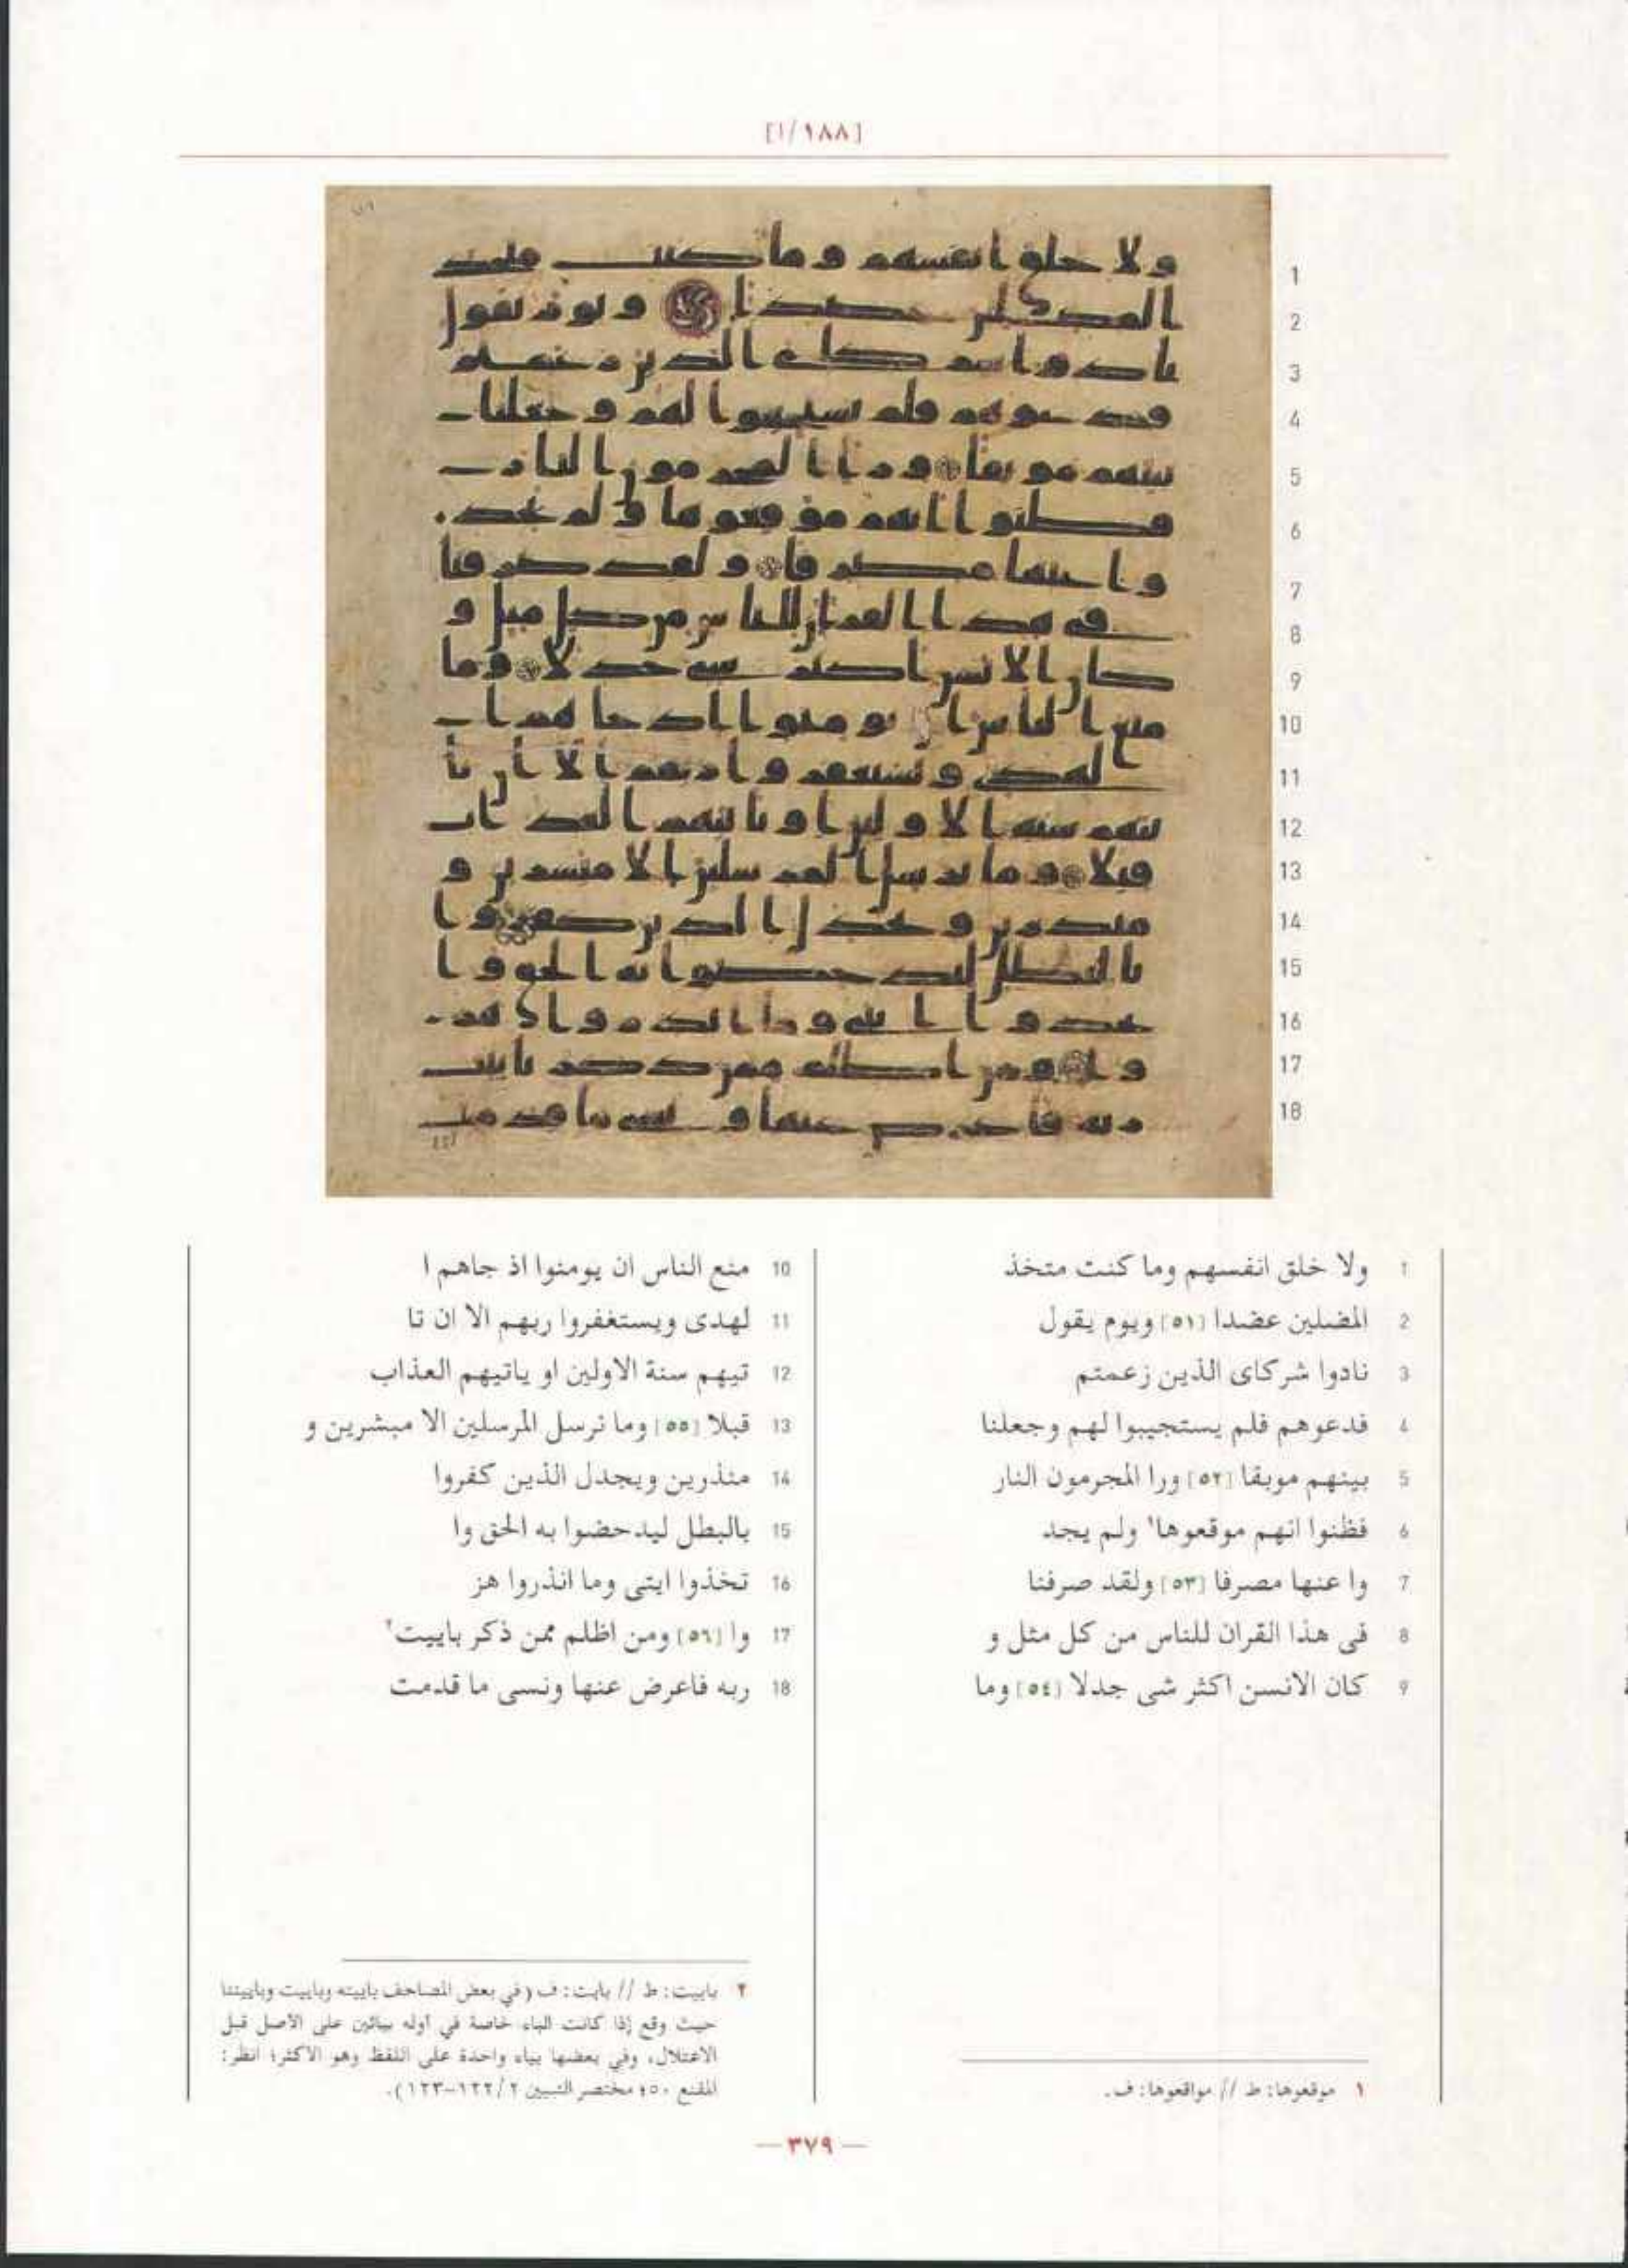 [١/١٨٨]
1 ولا خلق انفسهم وما كنت متخذ
2 المضلين عضدا [٥١] ويوم يقول
3 نادوا شركاى الذين زعمتم
4 فدعوهم فلم يستجيبوا لهم وجعلنا
5 بينهم موبقا [٥٢] ورا المجرمون النار
6 فظنوا انهم موقعوها١ ولم يجد
7 وا عنها مصرفا [٥٣] ولقد صرفنا
8 فى هذا القران للناس من كل مثل و
9 كان الانسن اكثر شى جدلا [٥٤] وما
10 منع الناس ان يومنوا اذ جاهم ا
11 لهدى ويستغفروا ربهم الا ان تا
12 تيهم سنة الاولين او ياتيهم العذاب
13 قبلا [٥٥] وما نرسل المرسلين الا مبشرين و
14 منذرين ويجدل الذين كفروا
15 بالبطل ليدحضوا به الحق وا
16 تخذوا ايتى وما انذروا هز
17 وا [٥٦] ومن اظلم ممن ذكر باييت٢
18 ربه فاعرض عنها ونسى ما قدمت
١ موقعوها: ط // مواقعوها: ف.
٢ باييت: ط // بايت: ف (في بعض المصاحف باييته وباييت وباييتنا
حيث وقع إذا كانت الباء خاصة في أوله بيائين على الأصل قبل
الاعتلال، وفي بعضها بياء واحدة على اللفظ وهو الأكثر؛ انظر:
المقنع ٥٠؛ مختصر التبيين ٢/١٢٢-١٢٣).
— ٣٧٩ —